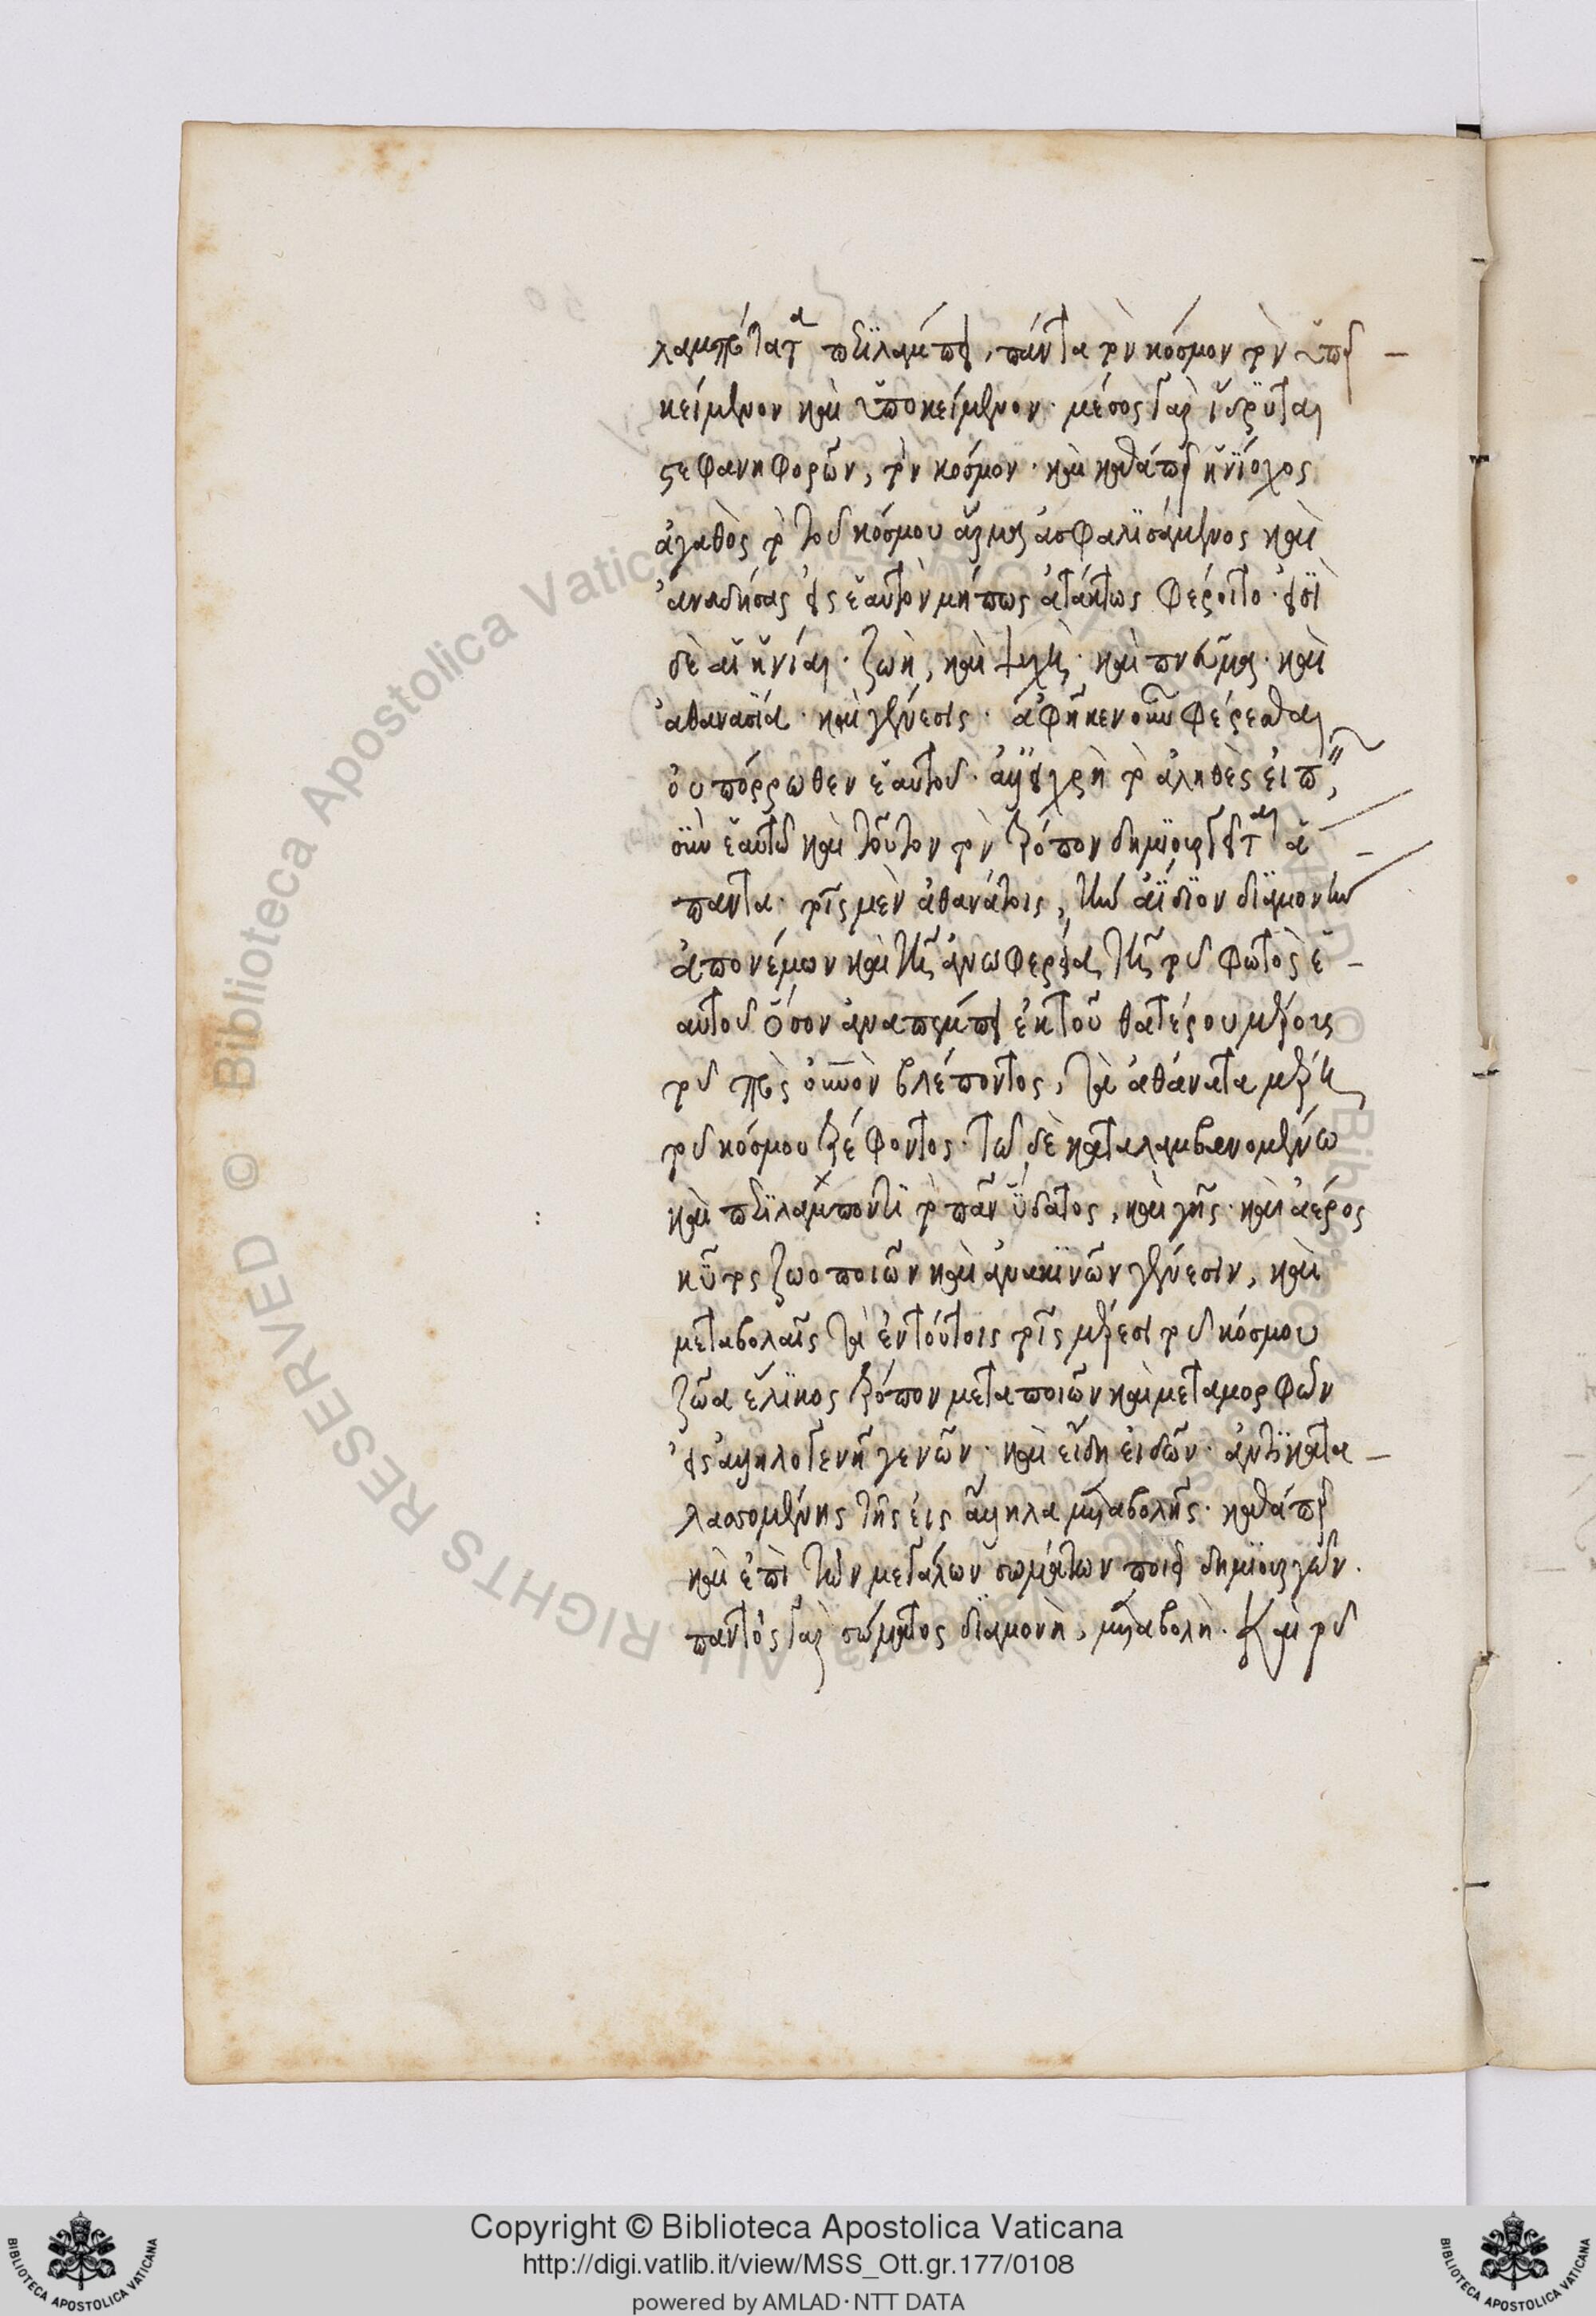 λαμπρότατα περιλάμπει, πάντα τὸν κόσμον τὸν ὑπερ
κείμενον καὶ ὑποκείμενον· μέσος γὰρ ἵδρυται
στεφανηφορῶν, τὸν κόσμον· καὶ καθάπερ ἡνίοχος
ἀγαθὸς τὸ τοῦ κόσμου ἅρμα ἀσφαλισάμενος καὶ
ἀναδήσας εἰς ἑαυτὸν μήπως ἀτάκτως φέροιτο· εἰσὶ
δὲ αἱ ἡνίαι· ζωὴ, καὶ ψυχὴ· καὶ πνεῦμα· καὶ
ἀθανασία· καὶ γένεσις· ἀφῆκεν οὖν φέρεσθαι
οὐ πόρρωθεν ἑαυτοῦ· ἀλλ' εἰ χρὴ τὸ ἀληθὲς εἰπεῖν,
σὺν ἑαυτῶ καὶ τοῦτον τὸν τρόπον δημιουργεῖται ἅ
παντα· τοῖς μὲν ἀθανάτοις, τὴν ἀΐδιον διαμονὴν
ἀπονέμων καὶ τῆ ἀνωφερεία τῆ τοῦ φωτὸς ἑ
αυτοῦ ὅσον ἀναπέμπει ἐκ τοῦ θατέρου μέρους
τοῦ πρὸς οὐρανὸν βλέποντος, τὰ ἀθάνατα μέρη
τοῦ κόσμου τρέφοντος· τῶ δὲ καταλαμβανομένω
καὶ περιλάμποντι τὸ πᾶν ὕδατος, καὶ γῆς· καὶ ἀέρος
κῦτος ζωοποιῶν καὶ ἀνακινῶν γένεσιν, καὶ
μεταβολαῖς τὰ ἐν τούτοις τοῖς μέρεσι τοῦ κόσμου
ζῶα ἕλικος τρόπον μεταποιῶν καὶ μεταμορφῶν
εἰς ἄλληλο γενῆ γενῶν· καὶ εἴδη εἰδῶν· ἀντικατα
λασσομένης τῆς εἰς ἄλληλα μεταβολῆς· καθάπερ
καὶ ἐπὶ τῶν μεγάλων σωμάτων ποιεῖ δημιουργῶν.
παντὸς γὰρ σώματος διαμονὴ, μεταβολὴ. Καὶ τοῦ
:
Copyright © Biblioteca Apostolica Vaticana
http://digi.vatlib.it/view/MSS_Ott.gr.177/0108
powered by AMLAD·NTT DATA
BIBLIOTECA APOSTOLICA VATICANA
BIBLIOTECA APOSTOLICA VATICANA